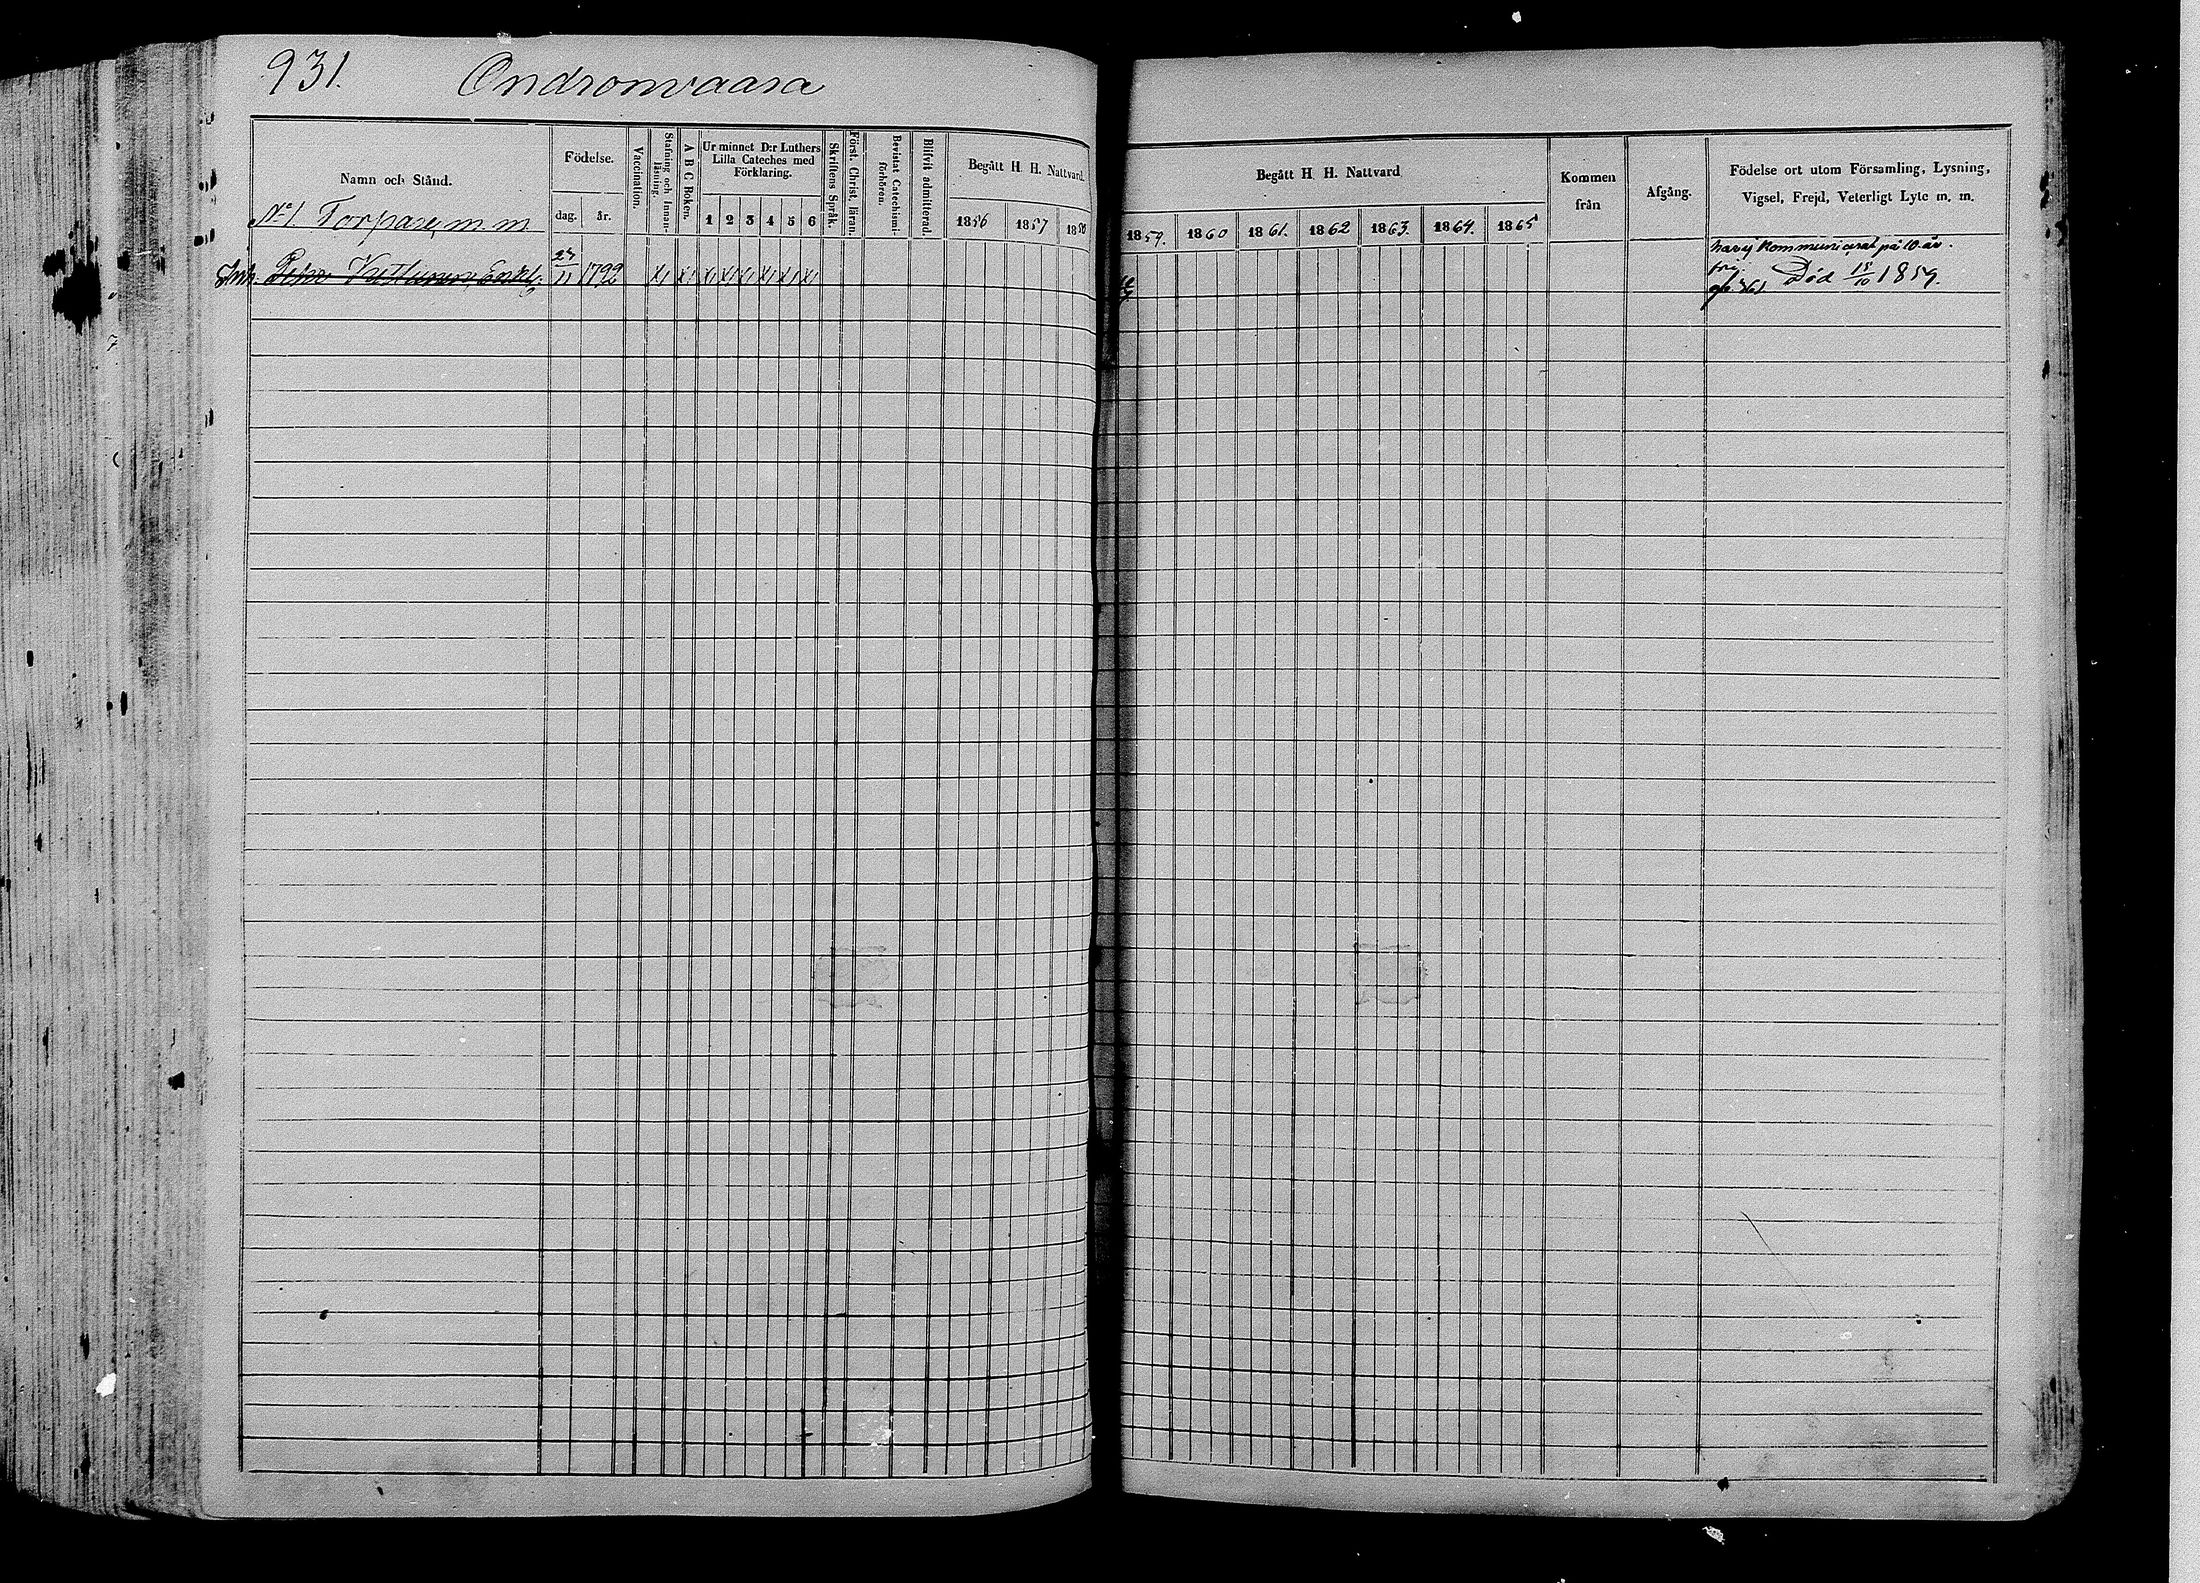 931. Ondronvaara
Namn och Stånd.
No 1. Torpare, m. m.
Födelse.
dag. år.
Vaccination.
Stafning och Innanläsning.
A B C Boken.
Ur minnet D:r Luthers
Lilla Cateches med
Förklaring.
1 2 3 4 5 6
Skriftens Språk.
Först. Christ. läran.
Bevistat Catechismiförhören.
Blifvit admitterad.
Begått H. H. Nattvard.
1856 1857 1858
Begått H. H. Nattvard
1859. 1860 1861. 1862 1863. 1864. 1865
Kommen
från
Afgång.
Födelse ort utom Församling, Lysning,
Vigsel, Frejd, Veterligt Lyte m. m.
Enkl. 11 1792 x x x x x x x x
har ej kommunicerat på 10 år.
Död 15/10 1859.